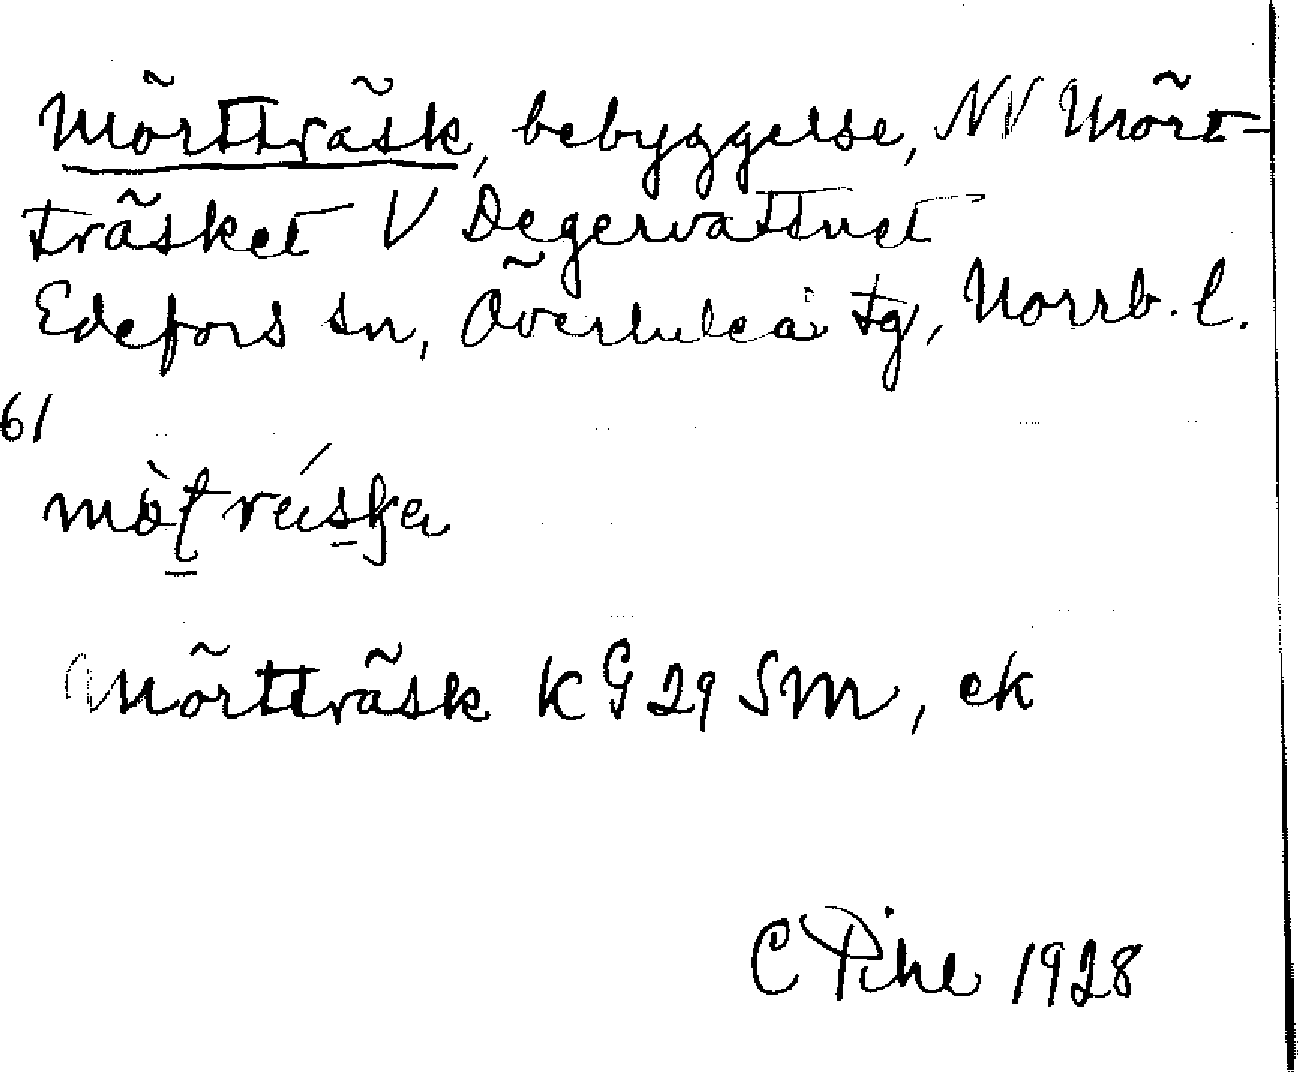 Mörtträsk, bebyggelse, NV Mört-
träsket V Degervattnet
Edefors sn, Överluleå tg, Norrb. l.
61
mò̱t rä́sḵa
Mörtträsk KG 29 SM, ek
C Pihl 1928